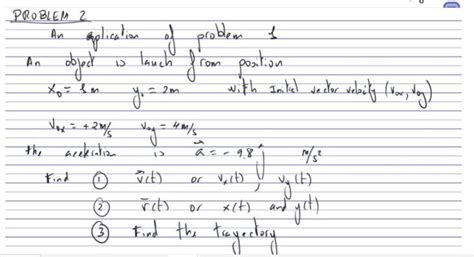 PROBLEM 2
An aplication of problem 1
An object is lauch from position
x₀ = 1m y₀ = 2m with Initial vector velocity (v₀ₓ, v₀y)
v₀ₓ = +2m/s v₀y = 4m/s
the acceleration is a⃗ = - 9.8 ĵ m/s²
Find ① v⃗(t) or vₓ(t), vy(t)
② r⃗(t) or x(t) and y(t)
③ Find the trayectory